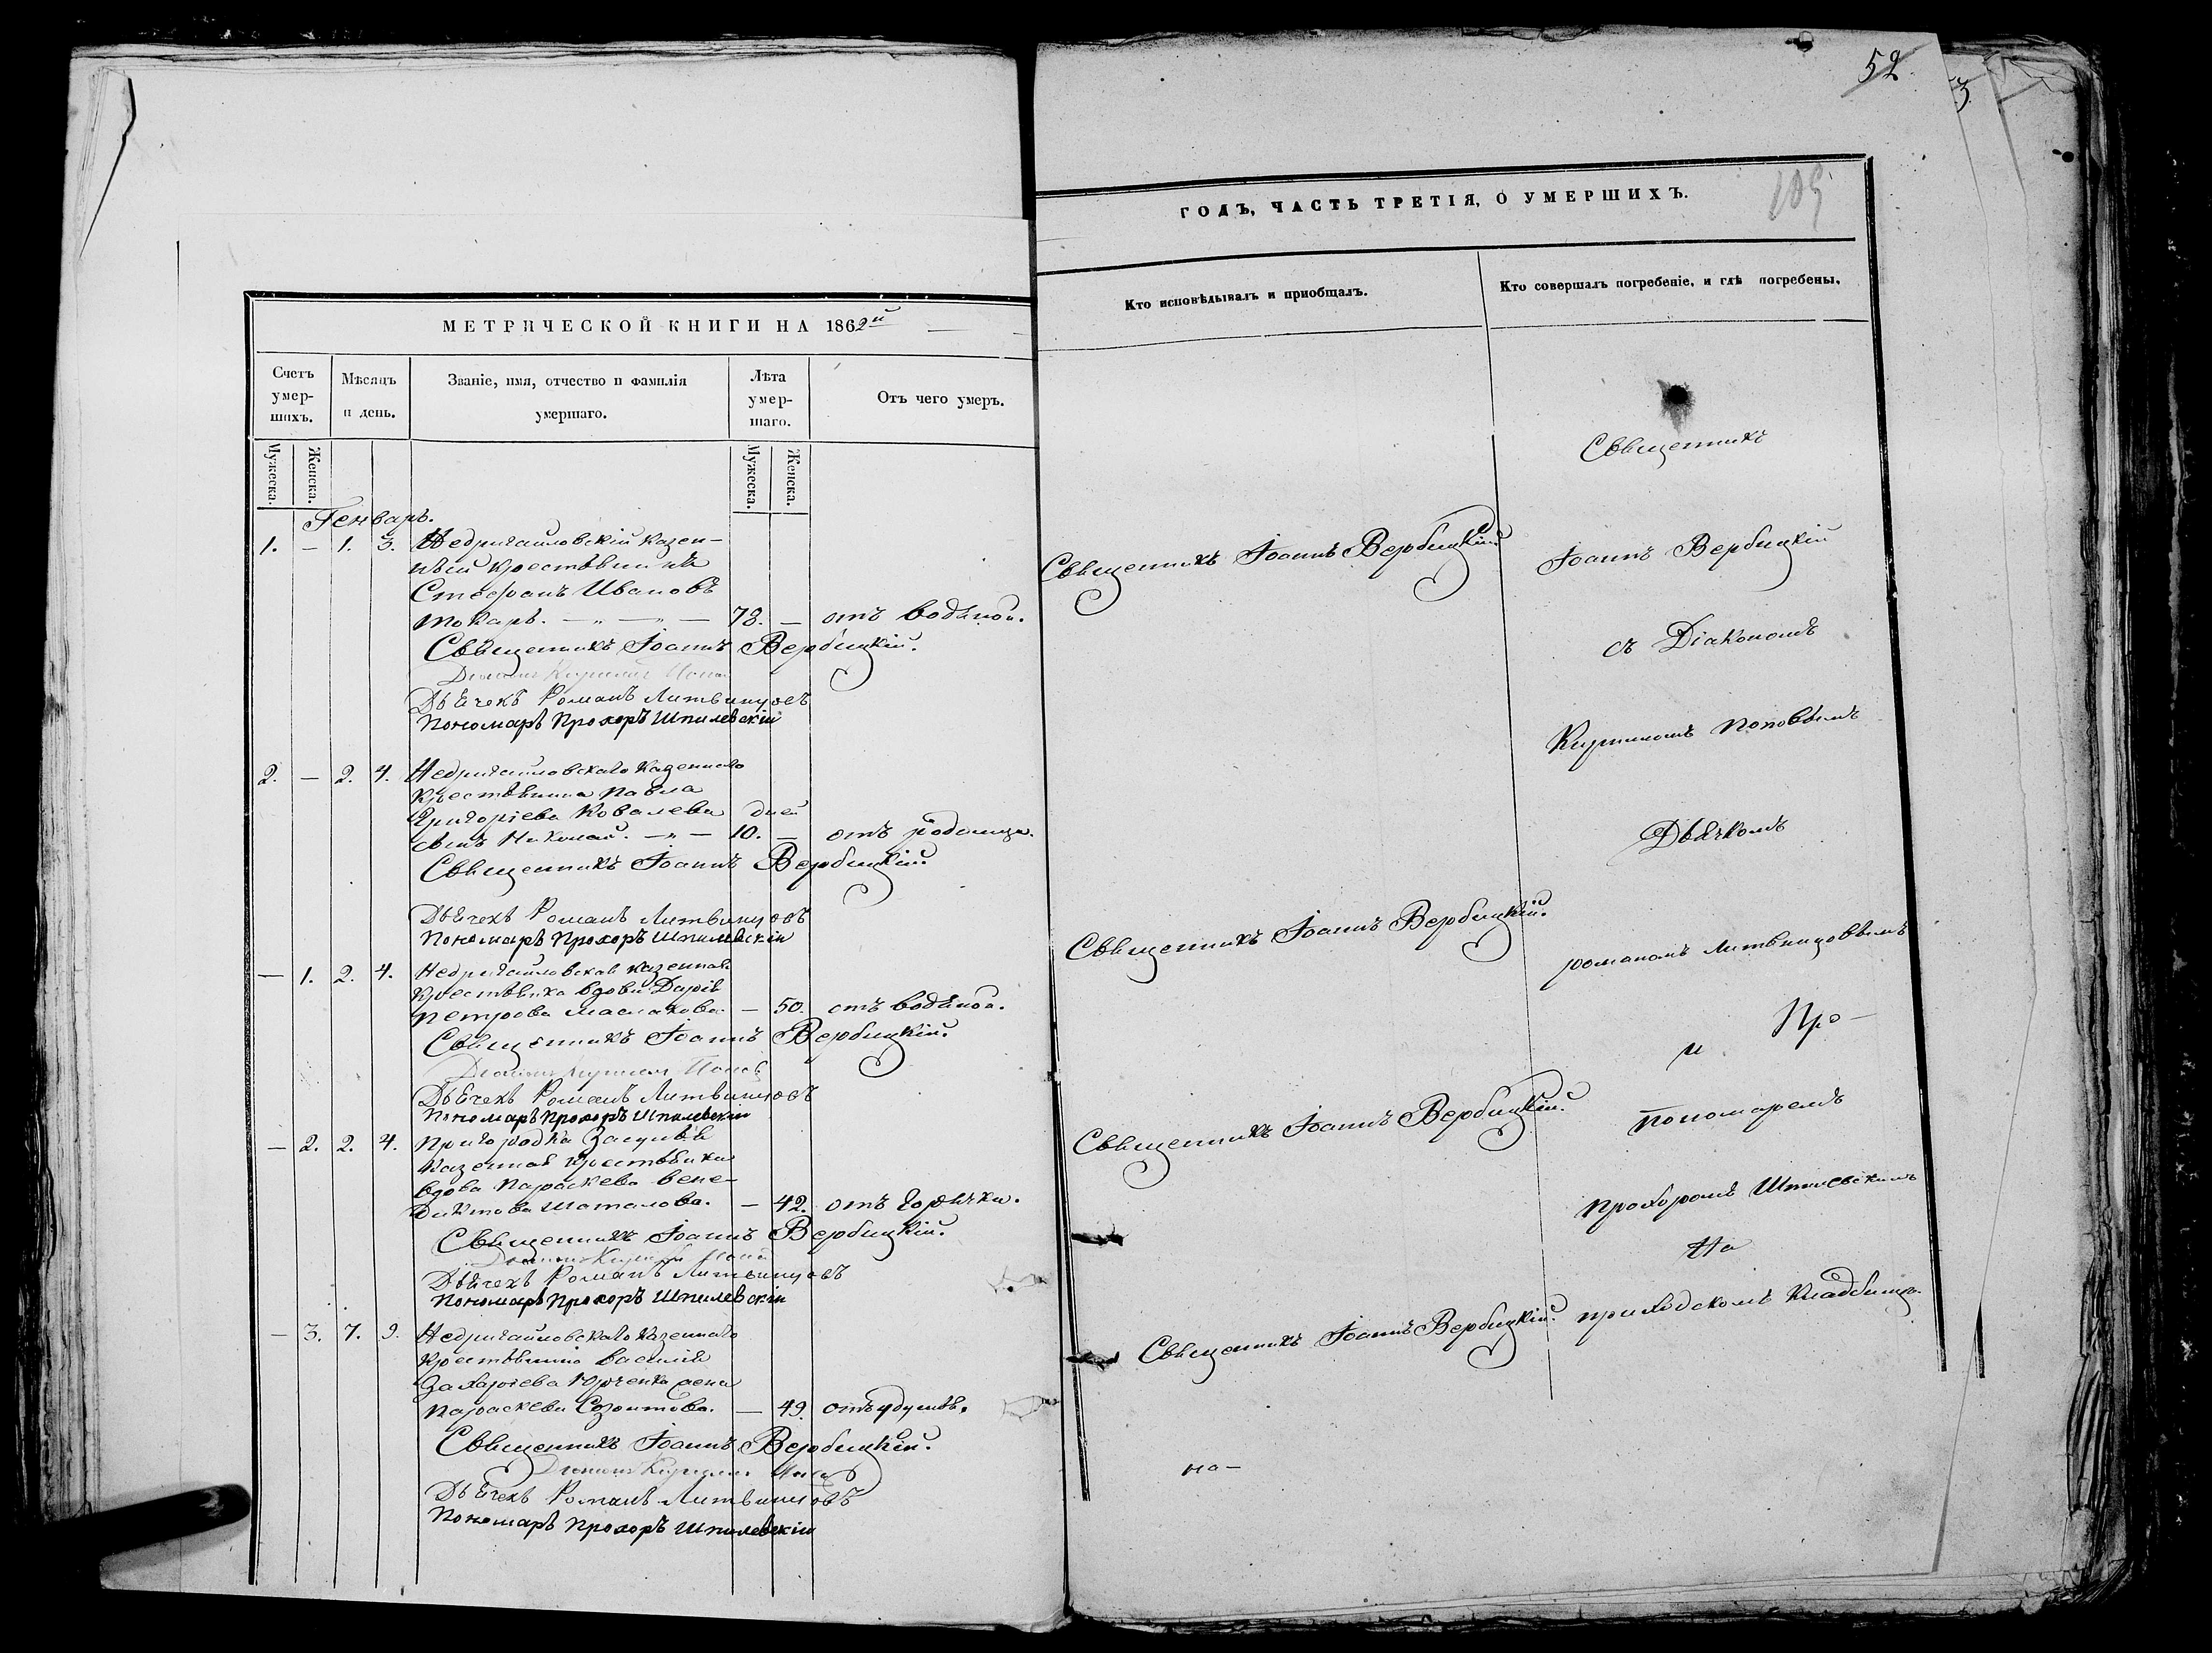 МЕТРИЧЕСКОЙ КНИГИ НА 1862й
Счетъ умер-шихъ.
Мѣсяцъ и день.
Званіе, имя, отчество и фамилія умершаго.
Лѣта умер-шаго.
Отъ чего умеръ.
Мужеска.
Женска.
Мужеска.
Женска.
Генварь.
1. — 1. 3. Недригайловскій казен-
ный крестьянинъ
Стефанъ Ивановъ
Токарь. — 78. — отъ водяной.
Священникъ Іоаннъ Вербицкій.
Діаконъ Кириллъ Поповъ
Дьячекъ Романъ Литвинцовъ
Пономарь Прохоръ Шпилевскій
2. — 2. 4. Недригайловскаго казеннаго
крестьянина Павла
Григоріева Ковалева дней
сынъ Николай. — 10. — отъ родимца.
Священникъ Іоаннъ Вербицкій.
Дьячекъ Романъ Литвинцовъ
Пономарь Прохоръ Шпилевскій
— 1. 2. 4. Недригайловская казенная
крестьянка вдова Дарія
Петрова — 50. отъ водяной.
Священникъ Іоаннъ Вербицкій.
Діаконъ Кириллъ Поповъ
Дьячекъ Романъ Литвинцовъ
Пономарь Прохоръ Шпилевскій
— 2. 2. 4. Пригородка Засулья
казенная крестьянка
вдова Параскева Вене-
диктова Шаталова. — 42. отъ горячки.
Священникъ Іоаннъ Вербицкій.
Діаконъ Кириллъ Поповъ
Дьячекъ Романъ Литвинцовъ
Пономарь Прохоръ Шпилевскій
— 3. 7. 9. Недригайловскаго казеннаго
крестьянина Василія
Захаріева Юрченка жена
Параскева Созонтова. — 49. отъ удушья.
Священникъ Іоаннъ Вербицкій.
Діаконъ Кириллъ Поповъ
Дьячекъ Романъ Литвинцовъ
Пономарь Прохоръ Шпилевскій
52.
3.
109
ГОДЪ, ЧАСТЬ ТРЕТІЯ, О УМЕРШИХЪ.
Кто исповѣдывалъ и пріобщалъ.
Кто совершалъ погребеніе, и гдѣ погребены,
Священникъ Іоаннъ Вербицкій.
Священникъ Іоаннъ Вербицкій.
Священникъ Іоаннъ Вербицкій.
Священникъ Іоаннъ Вербицкій.
на—
Священникъ
Іоаннъ Вербицкій
съ Діакономъ
Кирилломъ Поповымъ
Дьячкомъ
Романомъ Литвинцовымъ
и Про-
пономаремъ
Прохоромъ Шпилевскимъ
На
приходскомъ кладбищѣ.